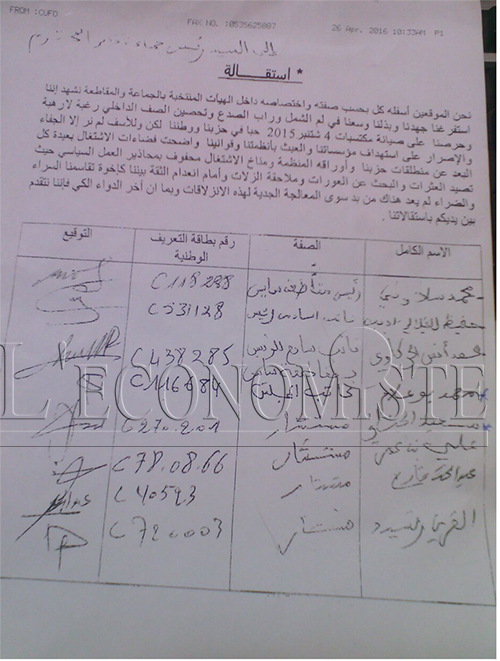 FROM :CUFO
FAX NO. :0535625887
26 Apr. 2016 10:33AM P1
إلى السيد رئيس
* استقالة *
نحن الموقعين أسفله كل بحسب صفته واختصاصه داخل الهيأت المنتخبة بالجماعة والمقاطعة نشهد إننا
استفرغنا جهدنا وبذلنا وسعنا في لم الشمل وراب الصدع وتحصين الصف الداخلي رغبة لا رهبة
وحرصنا على صيانة مكتسبات 4 شتنبر 2015 حبا في حزبنا ووطننا لكن وللأسف لم نر إلا الجفاء
والإصرار على استهداف مؤسساتنا والعبث بأنظمتنا وقوانينا وأضحت فضاءات الاشتغال بعيدة كل
البعد عن منطلقات حزبنا وأوراقه المنظمة ومناخ الاشتغال محفوف بمحاذير العمل السياسي حيث
تصيد العثرات والبحث عن العورات وملاحقة الزلات وأمام انعدام الثقة بيننا كإخوة تقاسمنا السراء
والضراء لم يعد هناك من بد سوى المعالجة الجدية لهذه الانزلاقات وبما ان آخر الدواء الكي فإننا نتقدم
بين يديكم باستقالاتنا .
الاسم الكامل الصفة رقم بطاقة التعريف الوطنية التوقيع
محمد رئيس مقاطعة سايس C118288
حفيظ نائب سادس للرئيس C531128
محمد نائب سابع للرئيس C438285
محمد بوعلام كاتب المجلس C116684
سعيد مستشار C270201
علي مستشار C78.08.66
عبد الحق مستشار C40593
مستشار C720003
L'ECONOMISTE